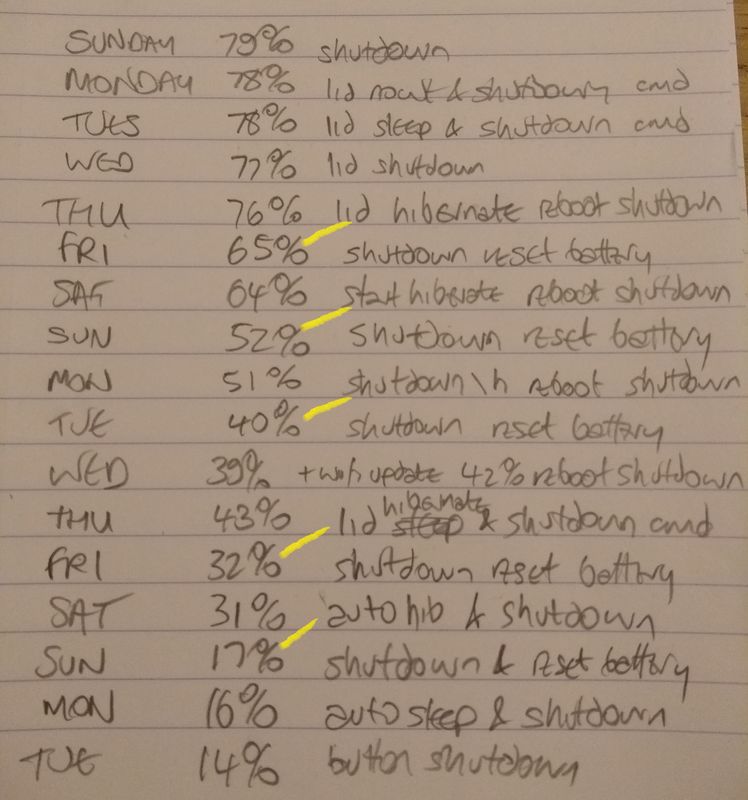 SUNDAY 79% shutdown
MONDAY 78% lid & shutdown cmd
TUES 78% lid sleep & shutdown cmd
WED 77% lid shutdown
THU 76% lid hibernate reboot shutdown
FRI 65% shutdown reset battery
SAT 64% start hibernate reboot shutdown
SUN 52% shutdown reset battery
MON 51% shutdown \h reboot shutdown
TUE 40% shutdown reset battery
WED 39% + update 42% reboot shutdown
THU 43% lid hibernate & shutdown cmd
FRI 32% shutdown reset battery
SAT 31% auto hib & shutdown
SUN 17% shutdown & reset battery
MON 16% auto sleep & shutdown
TUE 14% button shutdown